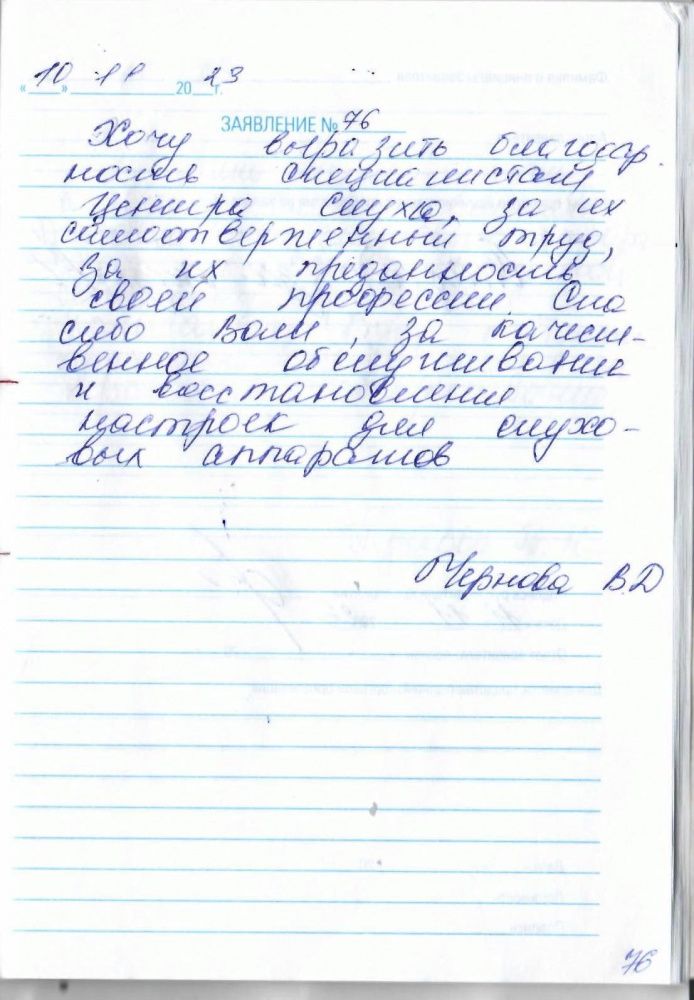 «10» 11 2023г.
ЗАЯВЛЕНИЕ № 76
Хочу выразить благодар
ность специалистам
Центра Слуха, за их
самоотверженный труд,
за их преданность
своей профессии. Спа
сибо Вам, за качест-
венное обслуживание
и восстановление
настроек для слухо-
вых аппаратов
Чернова В.Д
76